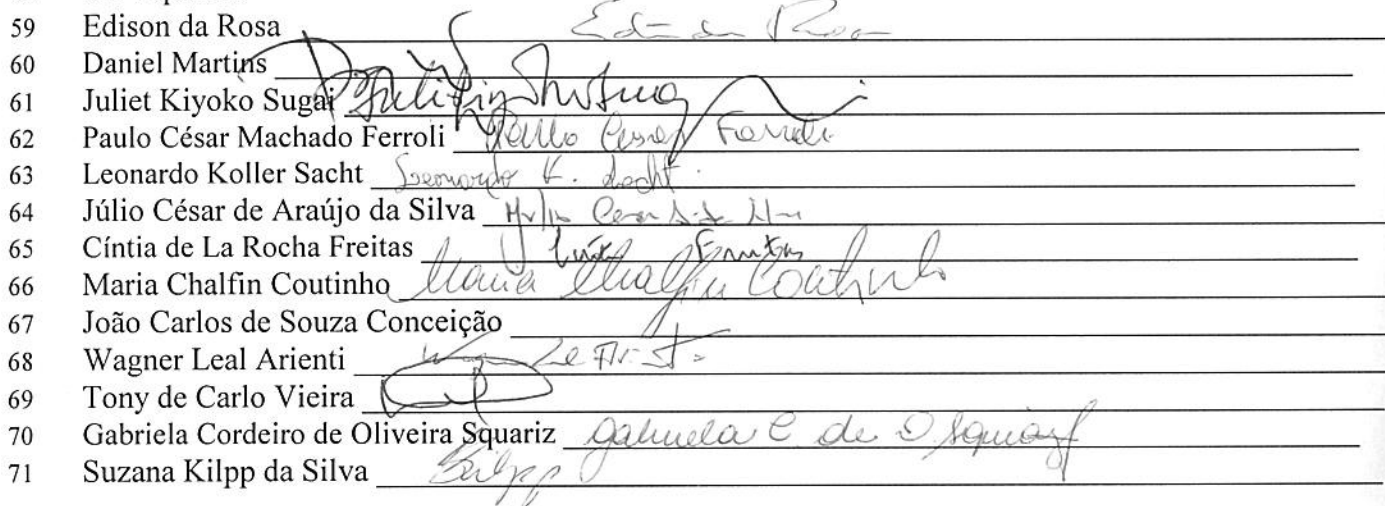 59 Edison da Rosa
60 Daniel Martins
61 Juliet Kiyoko Sugai
62 Paulo César Machado Ferroli Paulo Cesar Ferroli
63 Leonardo Koller Sacht Leonardo K. Sacht.
64 Júlio César de Araújo da Silva
65 Cíntia de La Rocha Freitas Cíntia Freitas
66 Maria Chalfin Coutinho Maria Chalfin Coutinho
67 João Carlos de Souza Conceição
68 Wagner Leal Arienti
69 Tony de Carlo Vieira
70 Gabriela Cordeiro de Oliveira Squariz Gabriela C. de O. Squariz
71 Suzana Kilpp da Silva Kilpp